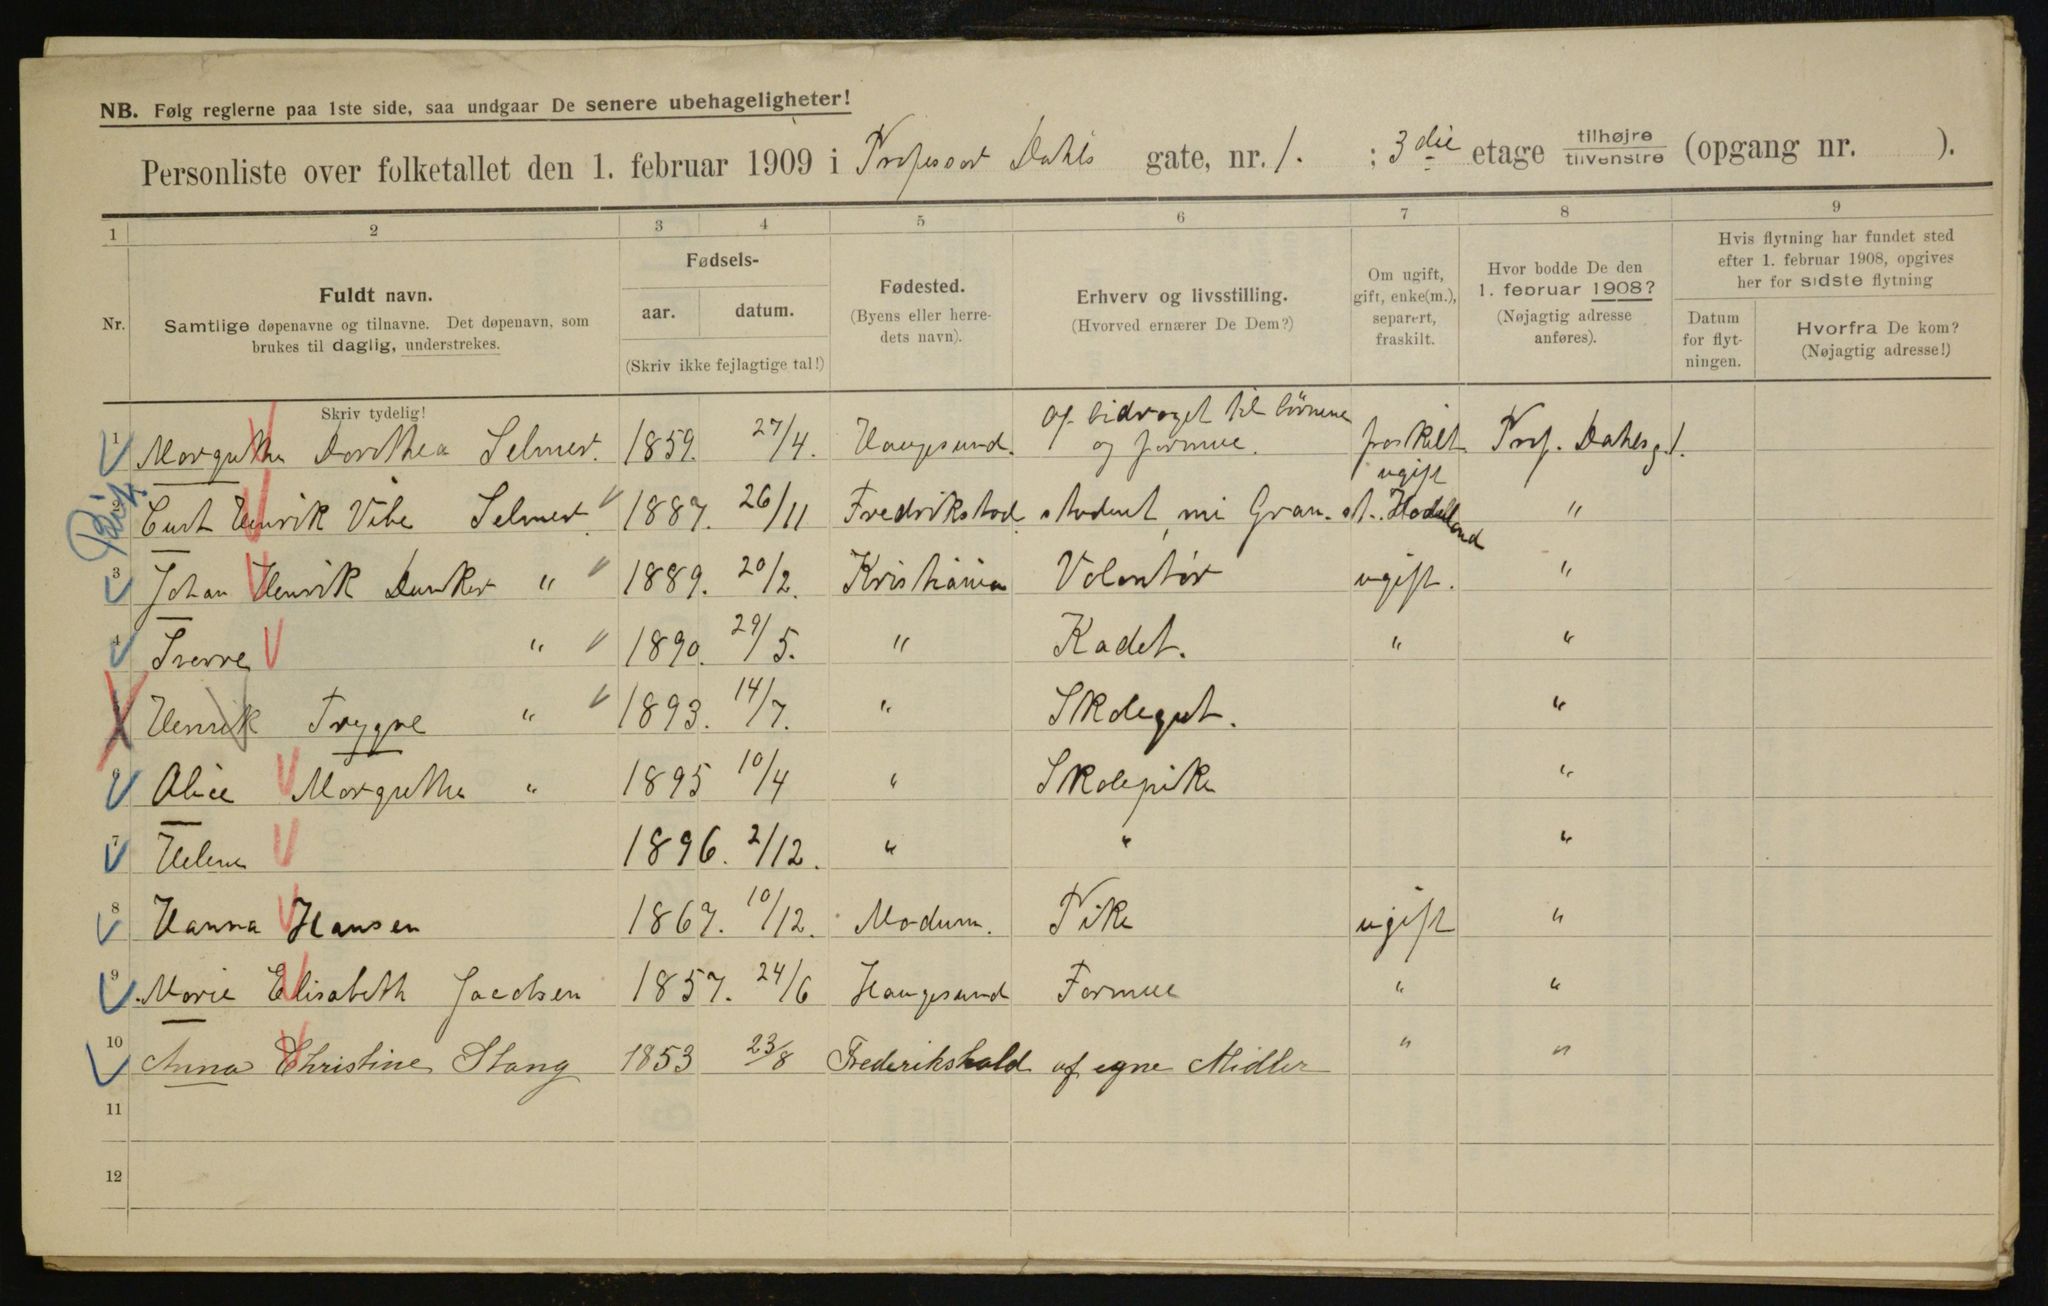 NB. Følg reglerne paa 1ste side, saa undgaar De senere ubehageligheter!
Personliste over folketallet den 1. februar 1909 i Professor Dahls gate, nr. 1. ; 3die etage tilhøjre tilvenstre (opgang nr. ).
1 2 3 4 5 6 7 8 9
Nr.
Fuldt navn.
Samtlige døpenavne og tilnavne. Det døpenavn, som
brukes til daglig, understrekes.
Skriv tydelig!
Fødsels-
aar. datum.
(Skriv ikke fejlagtige tal!)
Fødested.
(Byens eller herre-
dets navn).
Erhverv og livsstilling.
(Hvorved ernærer De Dem?)
Om ugift,
gift, enke(m.),
separert,
fraskilt.
Hvor bodde De den
1. februar 1908?
(Nøjagtig adresse
anføres).
Hvis flytning har fundet sted
efter 1. februar 1908, opgives
her for sidste flytning
Datum
for flyt-
ningen.
Hvorfra De kom?
(Nøjagtig adresse!)
1 Margrethe Dorothea Selmer. 1859. 27/4. Haugesund. af bidraget til børnene og formue. fraskilt Prof. Dahlsg. 1.
2 Curt Henrik Vibe Selmer. 1887. 26/11 Fredrikstad student, ugift "
3 Johan Henrik Dunker " 1889. 20/2. Kristiania Volontør ugift. "
4 Sverre " 1890. 29/5. " Kadet. " "
Henrik Trygve " 1893. 14/7. " Skolegut. "
6 Alice Margrethe " 1895 10/4 " Skolepike "
7 Helene 1896. 2/12. " " "
8 Hanna Hansen 1867. 10/12. Modum. Pike ugift "
9 Marie Elisabeth Jacobsen 1857. 24/6 Haugesund Formue " "
10 Anna Christine Stang 1853 23/8 Frederikshald af egne Midler " "
11
12